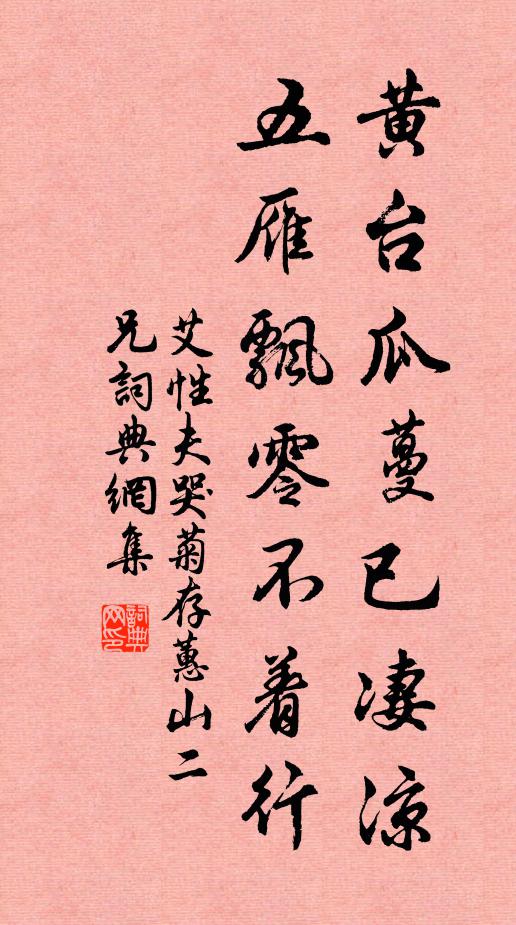 黄台瓜蔓已凄涼
五雁飄零不着行
艾性夫哭菊存蕙山二
兄詞典網集
詞典
网印